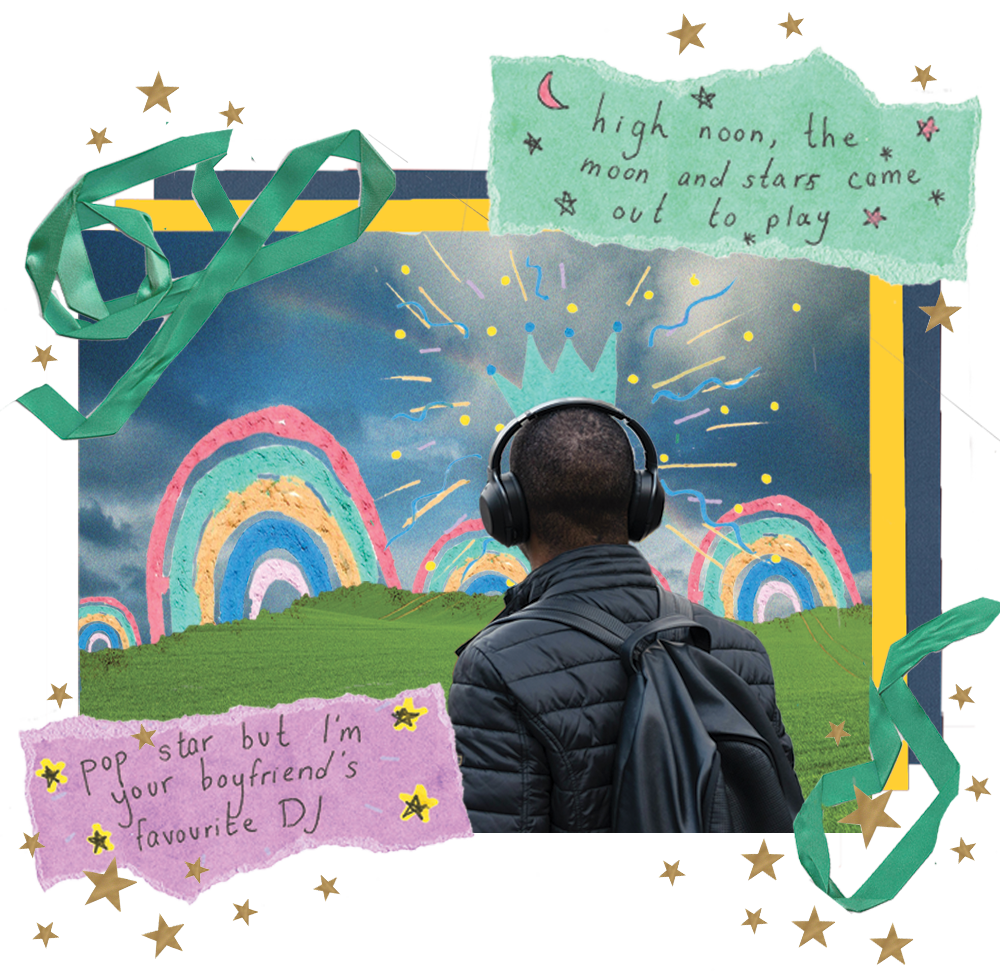 high noon, the
moon and stars come
out to play
pop star but I'm
your boyfriend's
favourite DJ